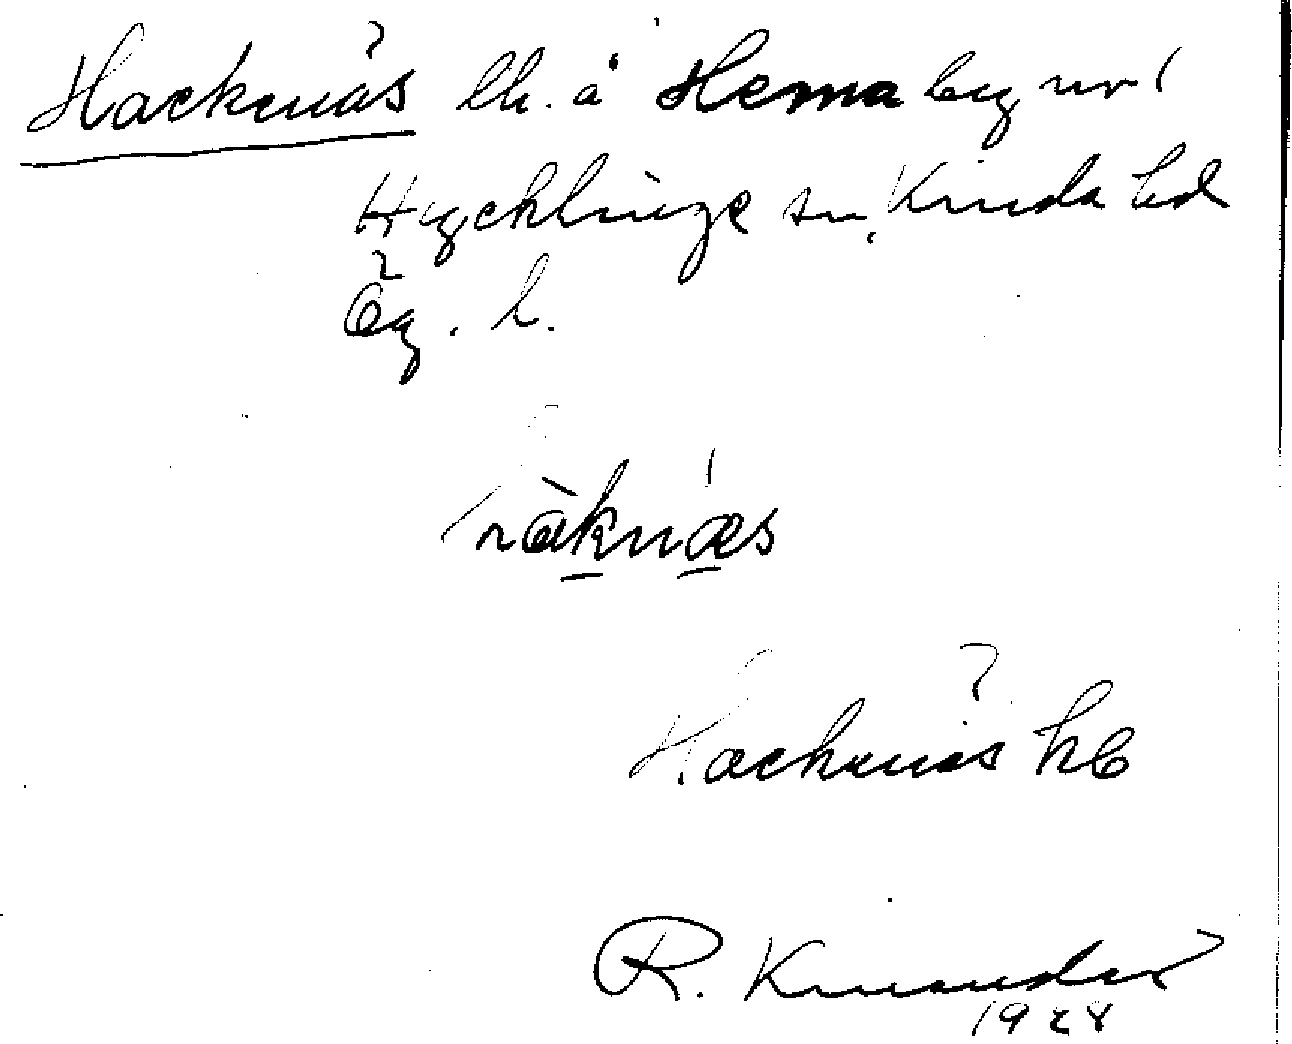 Hacknäs lh. å Hema by nr 1
Hycklinge sn, Kinda hd
Ög. l.
Hacknäs hb
R. Kinander
1928